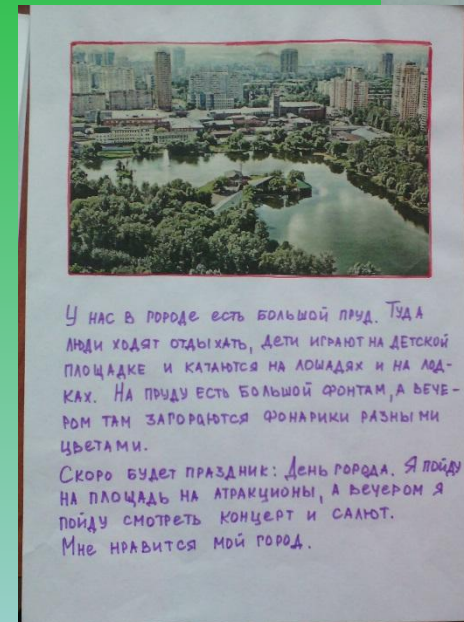 У нас в городе есть большой пруд. Туда
люди ходят отдыхать, дети играют на детской
площадке и катаются на лошадях и на лод-
ках. На пруду есть большой фонтам, а вече-
ром там загораются фонарики разными
цветами.
Скоро будет праздник: День города. Я пойду
на площадь на атракционы, а вечером я
пойду смотреть концерт и салют.
Мне нравится мой город.